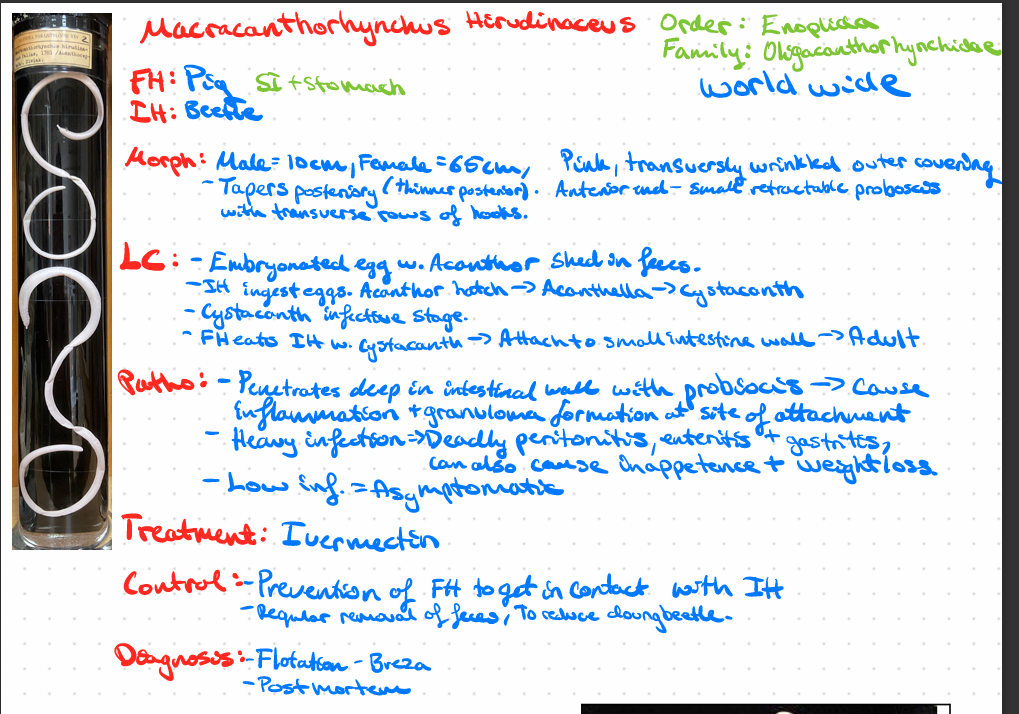 Macracanthorhynchus Hirudinaceus
Order: Enoplida
Family: Oligacanthorhynchidae
FH: Pig SI + stomach
World wide
IH: Beetle
Morph: Male = 10cm, Female = 65cm, Pink, transversly wrinkled outer covering
- Tapers posteriory (thinner posterior). Anterior end - small retractable proboscis
with transverse rows of hooks.
LC: - Embryonated egg w. Acanthor shed in feces.
- IH ingest eggs. Acanthor hatch -> Acanthella -> Cystacanth
- Cystacanth infective stage.
- FH eats IH w. cystacanth -> Attach to small intestine wall -> Adult
Patho: - Penetrates deep in intestinal wall with probiocis -> Cause
inflammation + granuloma formation at site of attachment
- Heavy infection => Deadly peritonitis, enteritis + gastritis,
can also cause inappetence + weightloss
- Low inf. = Asymptomatic
Treatment: Ivermectin
Control: - Prevention of FH to get in contact with IH
- Regular removal of feces, To reduce doungbeetle.
Diagnosis: - Flotation - Breza
- Postmortem